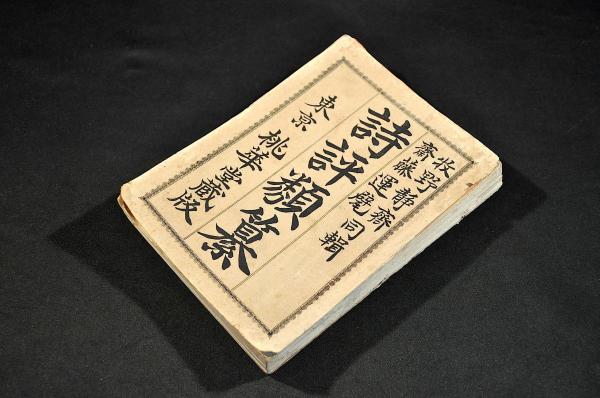 牧野静齋
齋藤運甓同輯
詩評類纂
東京 桃華堂蔵版